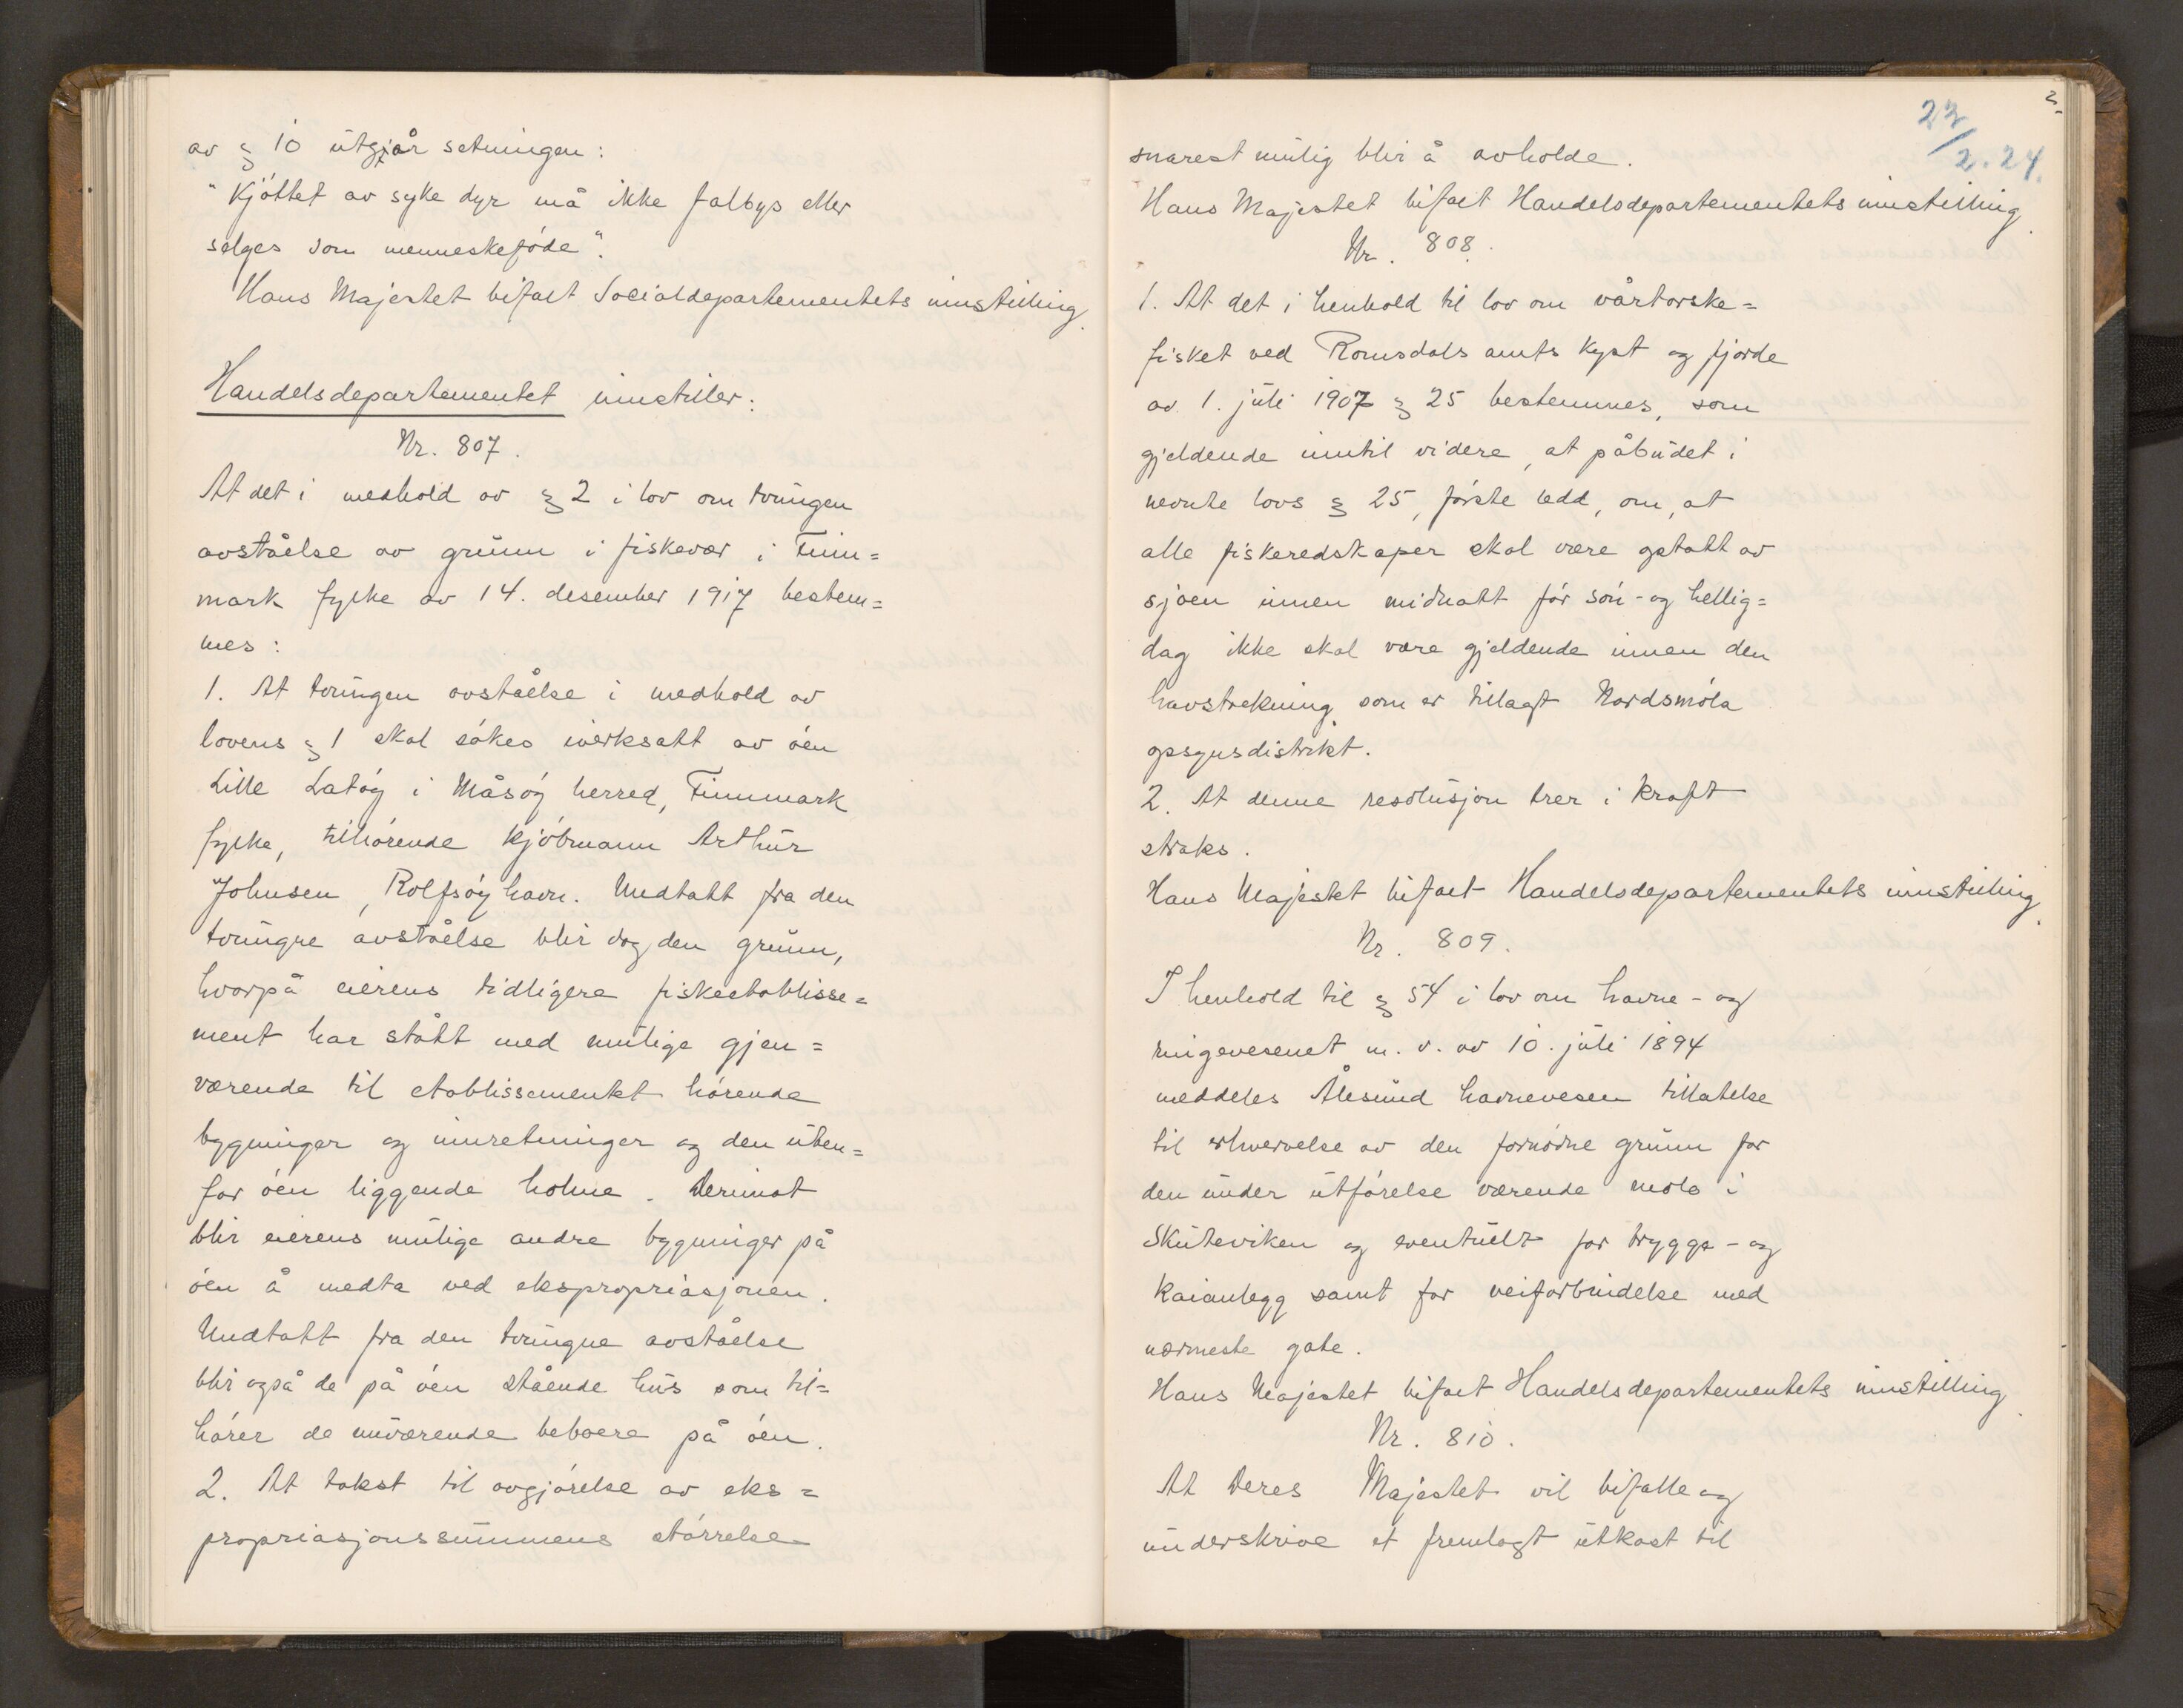 av § 10 utgår setningen:
"Kjøttet av syke dyr må ikke falbys eller
selges som menneskeføde".
Hans Majestet bifalt Socialdepartementets innstilling.
Handelsdepartementet innstiller:
Nr. 807.
At det i medhold av § 2 i lov om tvungen
avståelse av grunn i fiskevær i Finn=
mark fylke av 14. desember 1917 bestem=
mes:
1. At tvungen avståelse i medhold av
lovens § 1 skal søkes iverksatt av øen
Lille Latøy i Måsøy herred, Finnmark
fylke, tilhørende kjøbmann Arthur
Johnsen, Rolfsøyhavn. Undtatt fra den
tvungne avståelse blir dog den grunn,
hvorpå eierens tidligere fiskeetablisse=
ment har stått med mulige gjen=
værende til etablissementet hørende
bygninger og innretninger og den uten=
for øen liggende holme. Derimot
blir eierens mulige andre bygninger på
øen å medta ved ekspropriasjonen.
Undtatt fra den tvungne avståelse
blir også de på øen stående hus som til=
hører de nuværende beboere på øen.
2. At takst til avgjørelse av eks=
propriasjonssummens størrelse
23/2.24.
2
snarest mulig blir å avholde.
Hans Majestet bifalt Handelsdepartementets innstilling.
Nr. 808.
1. At det i henhold til lov om vårtorske=
fisket ved Romsdals amts kyst og fjorde
av 1. juli 1907 § 25 bestemmes, som
gjeldende inntil videre, at påbudet i
nevnte lovs § 25, første ledd, om, at
alle fiskeredskaper skal være optatt av
sjøen innen midnatt før søn- og hellig=
dag ikke skal være gjeldende innen den
havstrekning som er tillagt Nordsmøla
opsynsdistrikt.
2. At denne resolusjon trer i kraft
straks.
Hans Majestet bifalt Handelsdepartementets innstilling.
Nr. 809.
I henhold til § 54 i lov om havne- og
ringevesenet m. v. av 10. juli 1894
meddeles Ålesund havnevesen tillatelse
til erhvervelse av den fornødne grunn for
den under utførelse værende molo i
Skuteviken og eventuelt for brygge- og
kaianlegg samt for veiforbindelse med
nærmeste gate.
Hans Majestet bifalt Handelsdepartementets innstilling.
Nr. 810.
At Deres Majestet vil bifalle og
underskrive et fremlagt utkast til